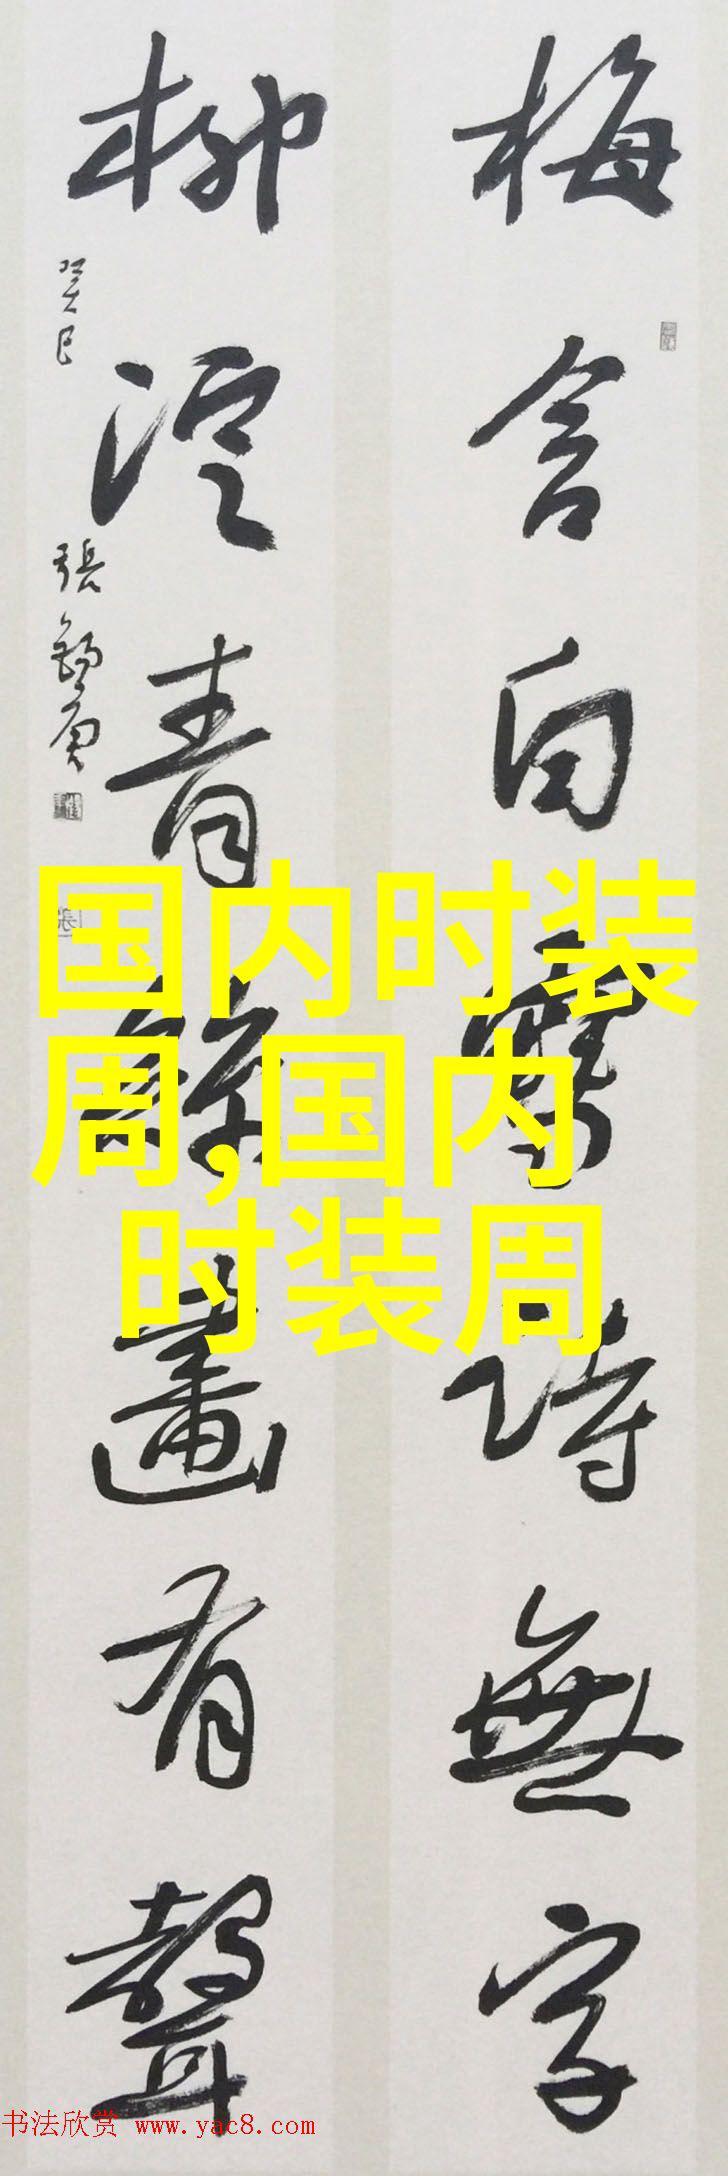 梅含白雪詩無字
柳浥青
畫有聲
癸巳
張
国内时装
周,国内
时装周
书法欣赏 www.yac8.com